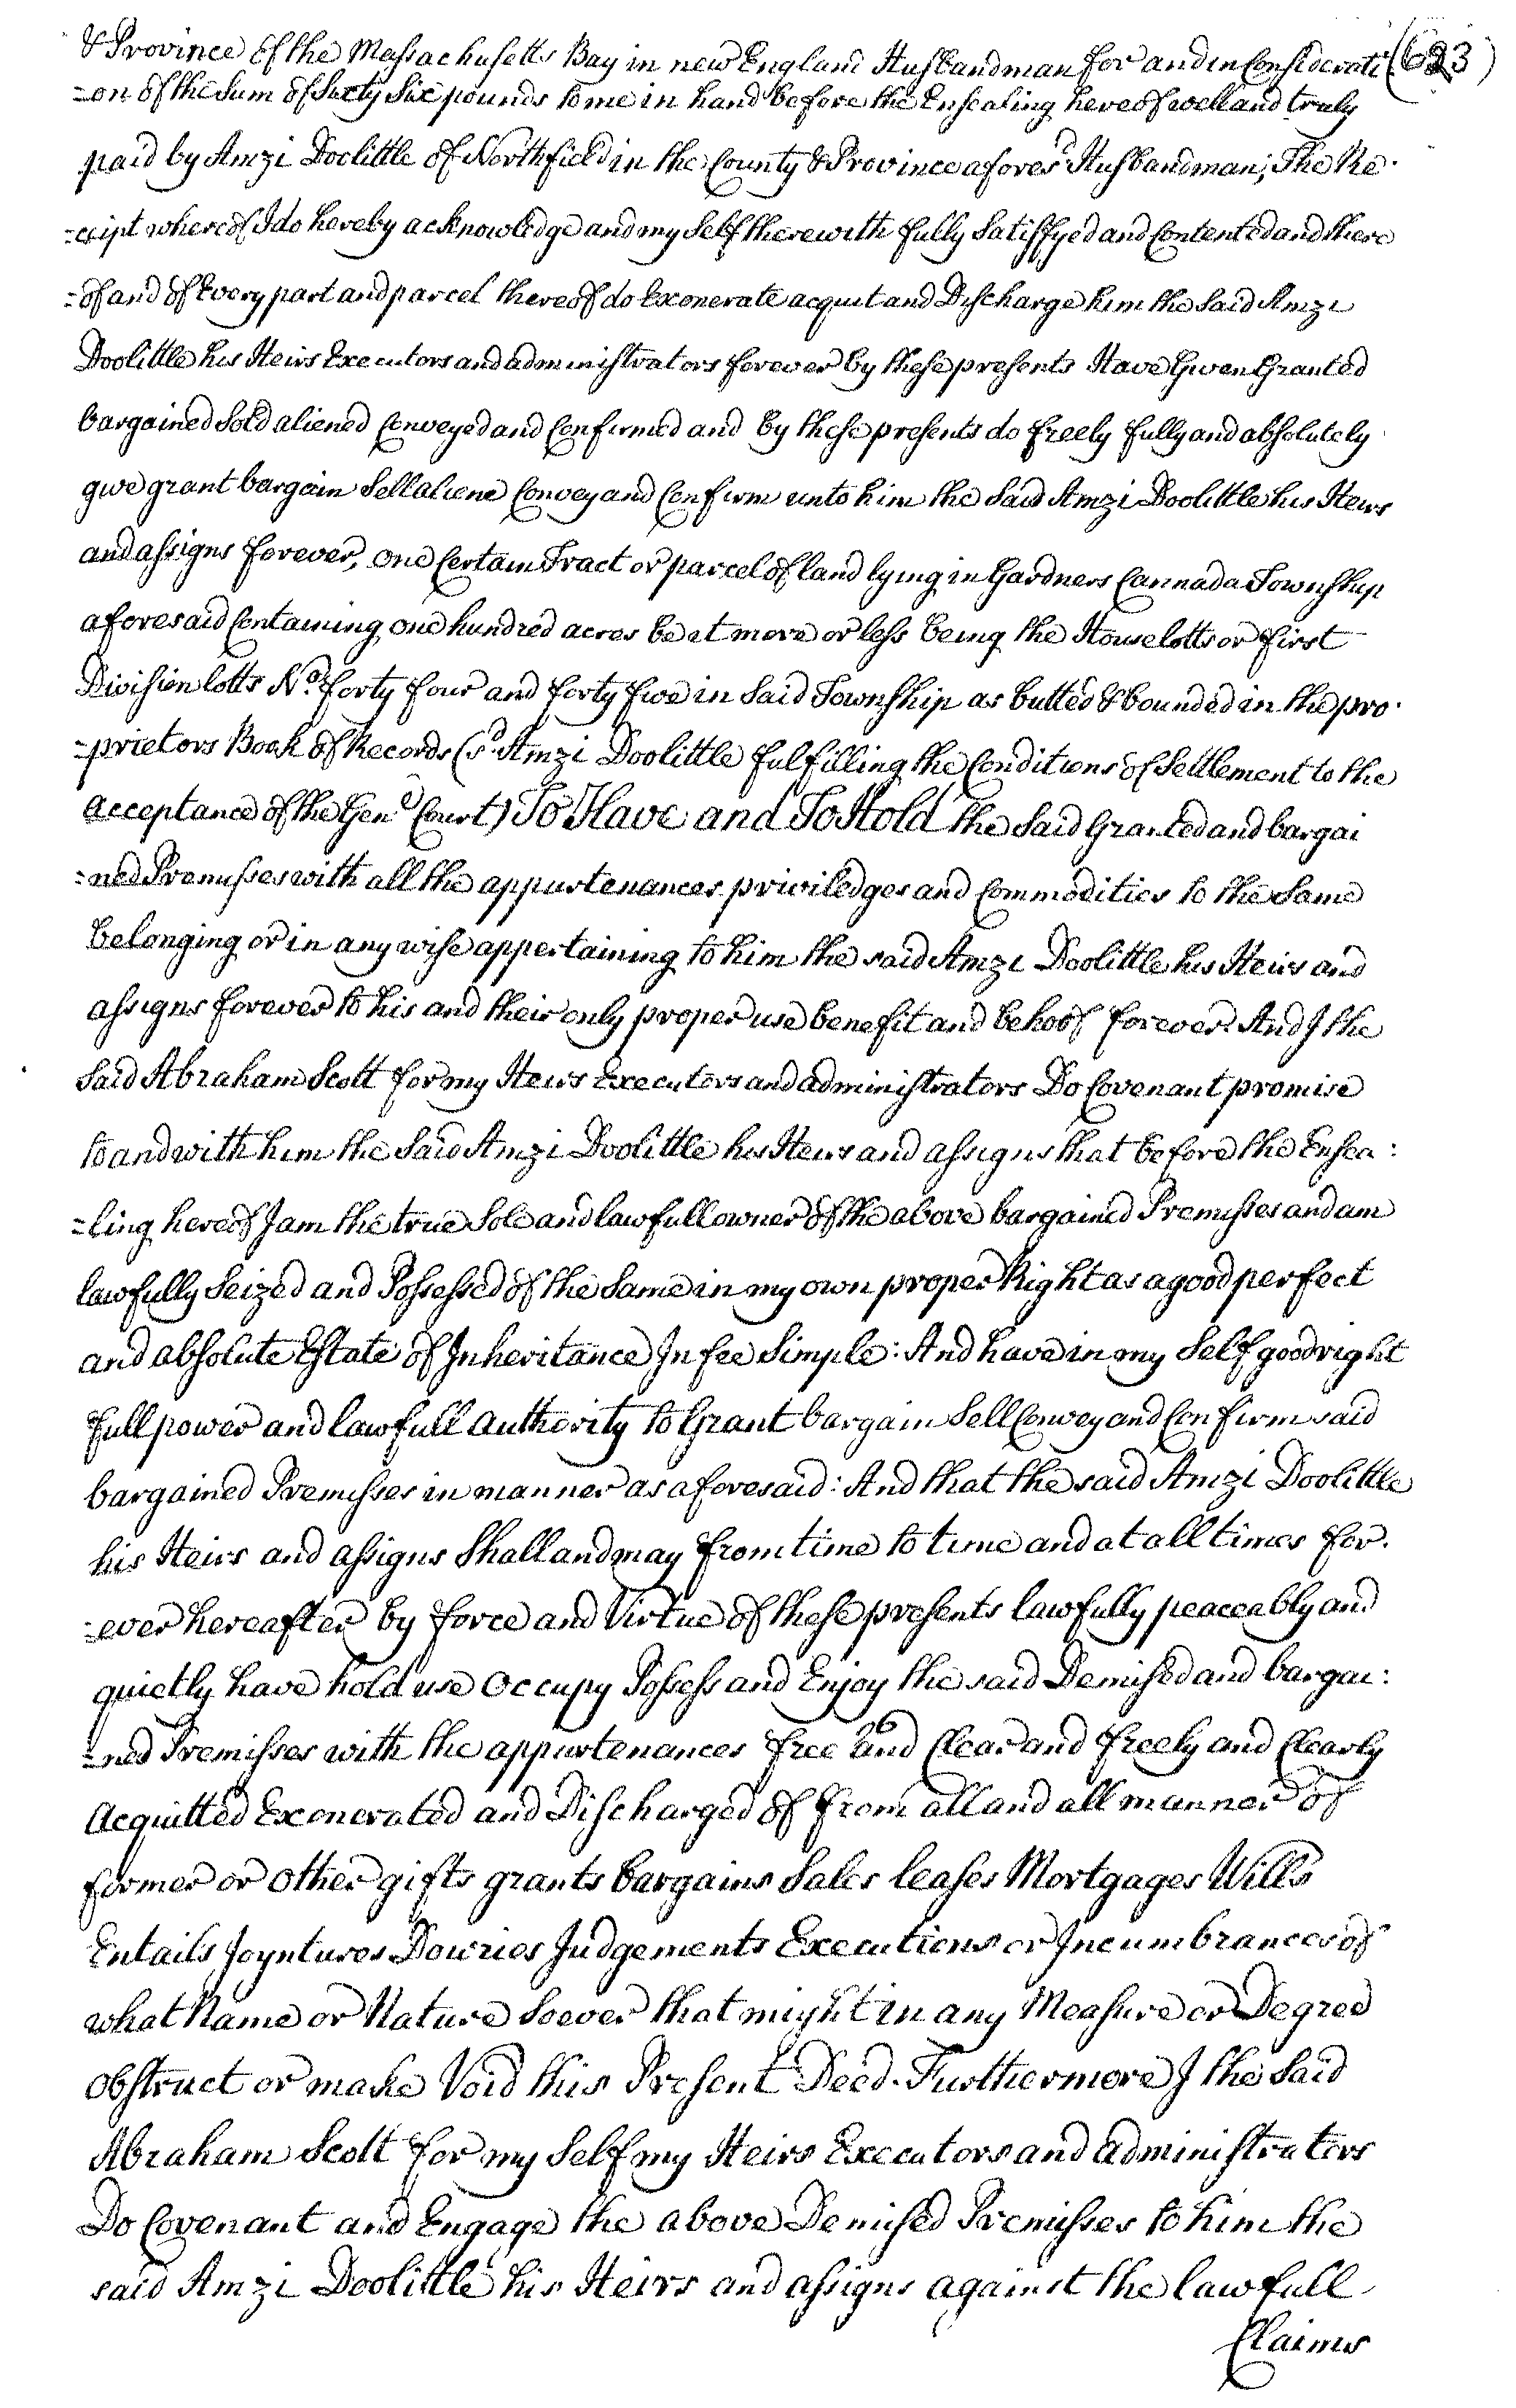 & Province of the Massachusetts Bay in new England Husbandman for and in Considerati (623)
=on of the Sum of Sixty Six pounds to me in hand before the Ensealing hereof well and truly
paid by Amzi Doolittle of Northfield in the County & Province aforesd Husbandman; The Re-
=ceipt whereof I do hereby acknowledge and my Self therewith fully Satisfyed and Contented and there
=of and of Every part and parcel thereof do Exonerate acquit and Discharge him the Said Amzi
Doolittle his Heirs Executors and administrators forever by these presents Have Given Granted
bargained Sold aliened Conveyed and Confirmed and by these presents do freely fully and absolutely
give grant bargain Sell aliene Convey and Confirm unto him the Said Amzi Doolittle his Heirs
and assigns forever, one Certain Tract or parcel of land lying in Gardners Cannada Township
aforesaid Containing one hundred acres be it more or less being the House lotts or first
Division lotts No. forty four and forty five in Said Township as butted & bounded in the pro-
=prietors Book of Records (sd Amzi Doolittle fulfilling the Conditions of Settlement to the
acceptance of the Genl Court) To Have and To Hold the Said Granted and bargai
=ned Premisses with all the appurtenances priviledges and Commodities to the Same
belonging or in any wise appertaining to him the said Amzi Doolittle his Heirs and
assigns forever to his and their only proper use benefit and behoof forever. And I the
Said Abraham Scott for my Heirs Executors and administrators Do Covenant promise
to and with him the Said Amzi Doolittle his Heirs and assigns that before the Ensea:
=ling hereof I am the true Sole and lawfull owner of the above bargained Premisses and am
lawfully Seized and Possessed of the Same in my own proper Right as a good perfect
and absolute Estate of Inheritance In fee Simple: And have in my Self good right
full power and lawfull authority to Grant bargain Sell Convey and Confirm said
bargained Premisses in manner as aforesaid: And that the said Amzi Doolittle
his Heirs and assigns Shall and may from time to time and at all times for-
=ever hereafter by force and Virtue of these presents lawfully peaceably and
quietly have hold use Occupy Possess and Enjoy the said Demised and bargai:
=ned Premisses with the appurtenances free and Clear and freely and Clearly
Acquitted Exonerated and Discharged of from all and all manner of
former or other gifts grants bargains Sales leases Mortgages Wills
Entails Joyntures Dowries Judgements Executions or Incumbrances of
what Name or Nature Soever that might in any Measure or Degree
obstruct or make Void this Present Deed. Furthermore I the Said
Abraham Scott for my Self my Heirs Executors and administrators
Do Covenant and Engage the above Demised Premisses to him the
said Amzi Doolittle his Heirs and assigns against the lawfull
Claims